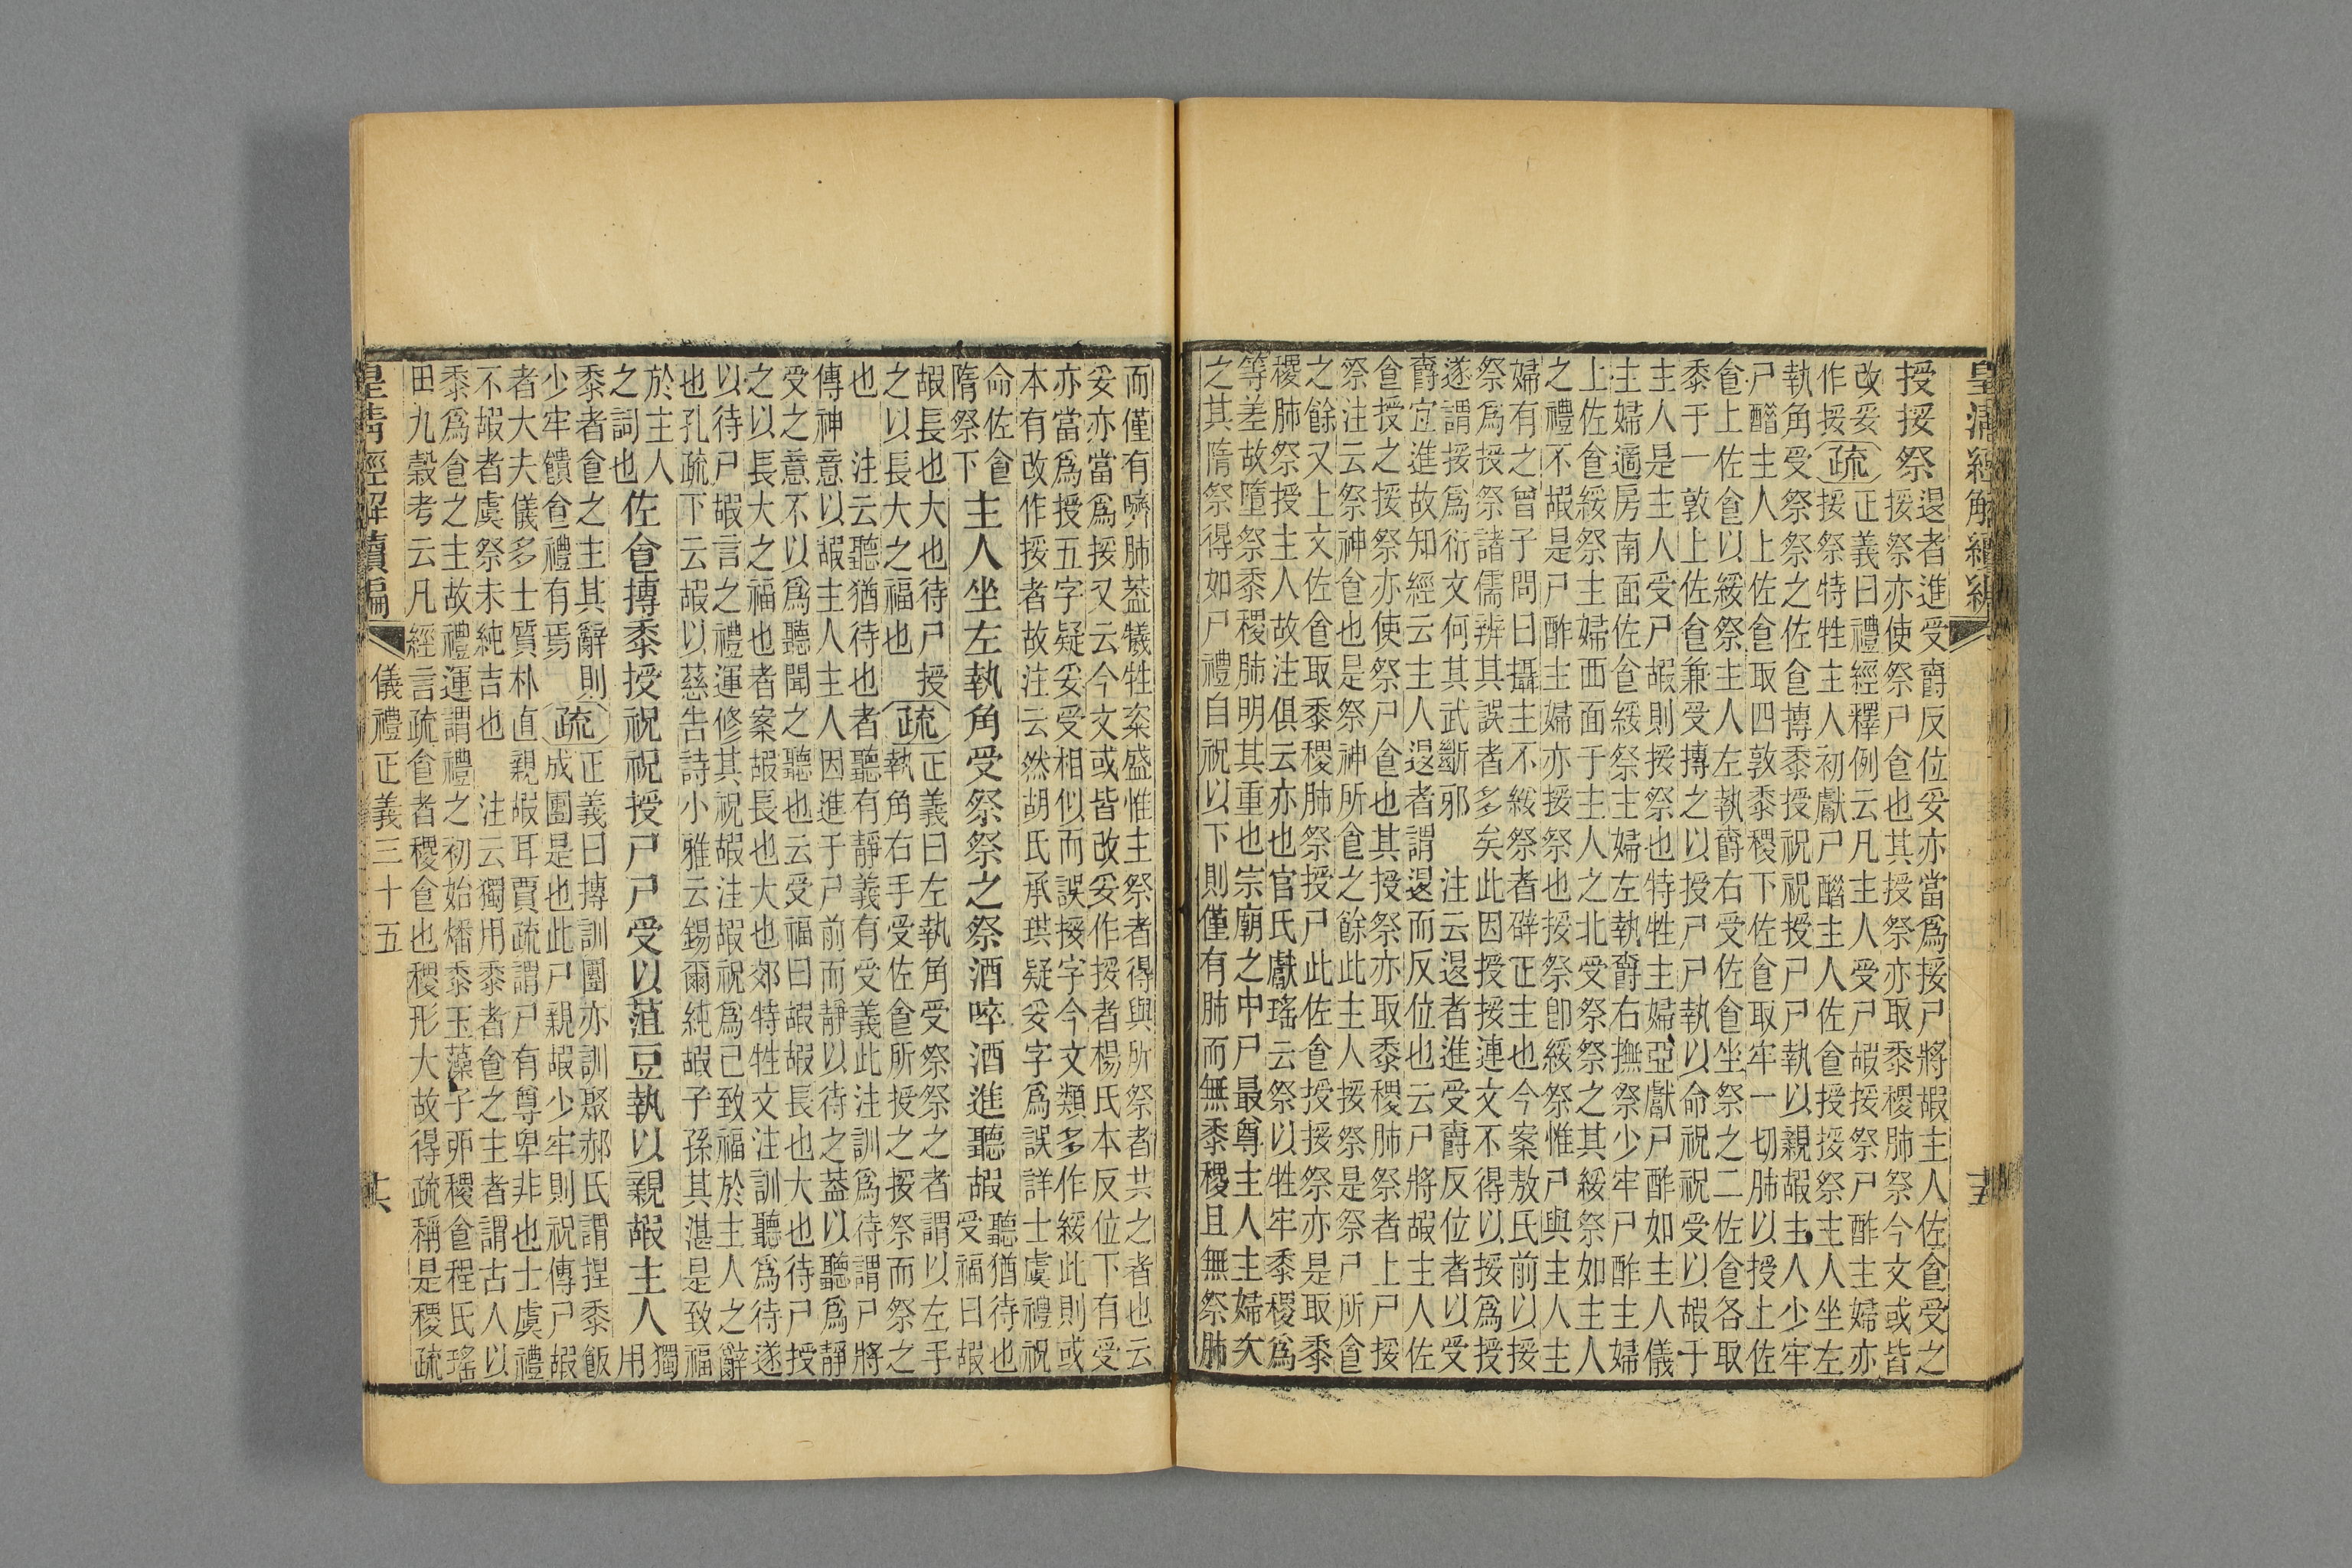 皇清經解續編
授挼祭
退者進受爵反位妥亦當爲挼尸將嘏主人佐食受之
挼祭亦使祭尸食也其授祭亦取黍稷肺祭今文或皆
改妥
作挼
疏
正義曰禮經釋例云凡主人受尸嘏挼祭尸酢主婦亦
挼祭特牲主人初獻尸酳主人佐食授挼祭主人坐左
執角受祭祭之佐食摶黍授祝祝授尸尸執以親嘏主人少牢
尸酳主人上佐食取四敦黍稷下佐食取牢一切肺以授上佐
食上佐食以綏祭主人左執爵右受佐食坐祭之二佐食各取
黍于一敦上佐食兼受摶之以授尸尸執以命祝祝受以嘏于
主人是主人受尸嘏則挼祭也特牲主婦亞獻尸酢如主人儀
主婦適房南面佐食綏祭主婦左執爵右撫祭少牢尸酢主婦
上佐食綏祭主婦西面于主人之北受祭祭之其綏祭如主人
之禮不嘏是尸酢主婦亦挼祭也挼祭卽綏祭惟尸與主人主
婦有之曾子問曰攝主不綏祭者辟正主也今案敖氏前以挼
祭爲授祭諸儒辨其誤者多矣此因授挼連文不得以挼爲授
遂謂挼爲衍文何其武斷邪　注云退者進受爵反位者以受
爵宜進故知經云主人退者謂退而反位也云尸將嘏主人佐
食授之挼祭亦使祭尸食也其授祭亦取黍稷肺祭者上尸挼
祭注云祭神食也是祭神所食之餘此主人挼祭是祭尸所食
之餘又上文佐食取黍稷肺祭授尸此佐食授挼祭亦是取黍
稷肺祭授主人故注俱云亦也官氏獻瑤云祭以牲牢黍稷爲
等差故墮祭黍稷肺明其重也宗廟之中尸最尊主人主婦矣
之其隋祭得如尸禮自祝以下則僅有肺而無黍稷且無祭肺
而僅有嚌肺葢犧牲粢盛惟主祭者得與所祭者共之者也云
妥亦當爲挼又云今文或皆改妥作挼者楊氏本反位下有受
亦當爲授五字疑妥受相似而誤挼字今文類多作綏此則或
本有改作挼者故注云然胡氏承珙疑妥字爲誤詳士虞禮祝
命佐食
隋祭下
主人坐左執角受祭祭之祭酒啐酒進聽嘏
聽猶待也
受福曰嘏
嘏長也大也待尸授
之以長大之福也
疏
正義曰左執角受祭祭之者謂以左手
執角右手受佐食所授之挼祭而祭之
也　注云聽猶待也者聽有靜義有受義此注訓爲待謂尸將
傳神意以嘏主人主人因進于尸前而靜以待之葢以聽爲靜
受之意不以爲聽聞之聽也云受福曰嘏嘏長也大也待尸授
之以長大之福也者案嘏長也大也郊特牲文注訓聽爲待遂
以待尸嘏言之禮運修其祝嘏注嘏祝爲已致福於主人之辭
也孔疏下云嘏以慈告詩小雅云錫爾純嘏子孫其湛是致福
於主人
之詞也
佐食摶黍授祝祝授尸尸受以菹豆執以親嘏主人
獨
用
黍者食之主其辭則
少牢饋食禮有焉
疏
正義曰摶訓團亦訓聚郝氏謂揑黍飯
成團是也此尸親嘏少牢則祝傳尸嘏
者大夫儀多士質朴直親嘏耳賈疏謂尸有尊卑非也士虞禮
不嘏者虞祭未純吉也　注云獨用黍者食之主者謂古人以
黍爲食之主故禮運謂禮之初始燔黍玉藻子卯稷食程氏瑤
田九穀考云凡經言疏食者稷食也稷形大故得疏稱是稷疏
皇清經解續編
儀禮正義三十五